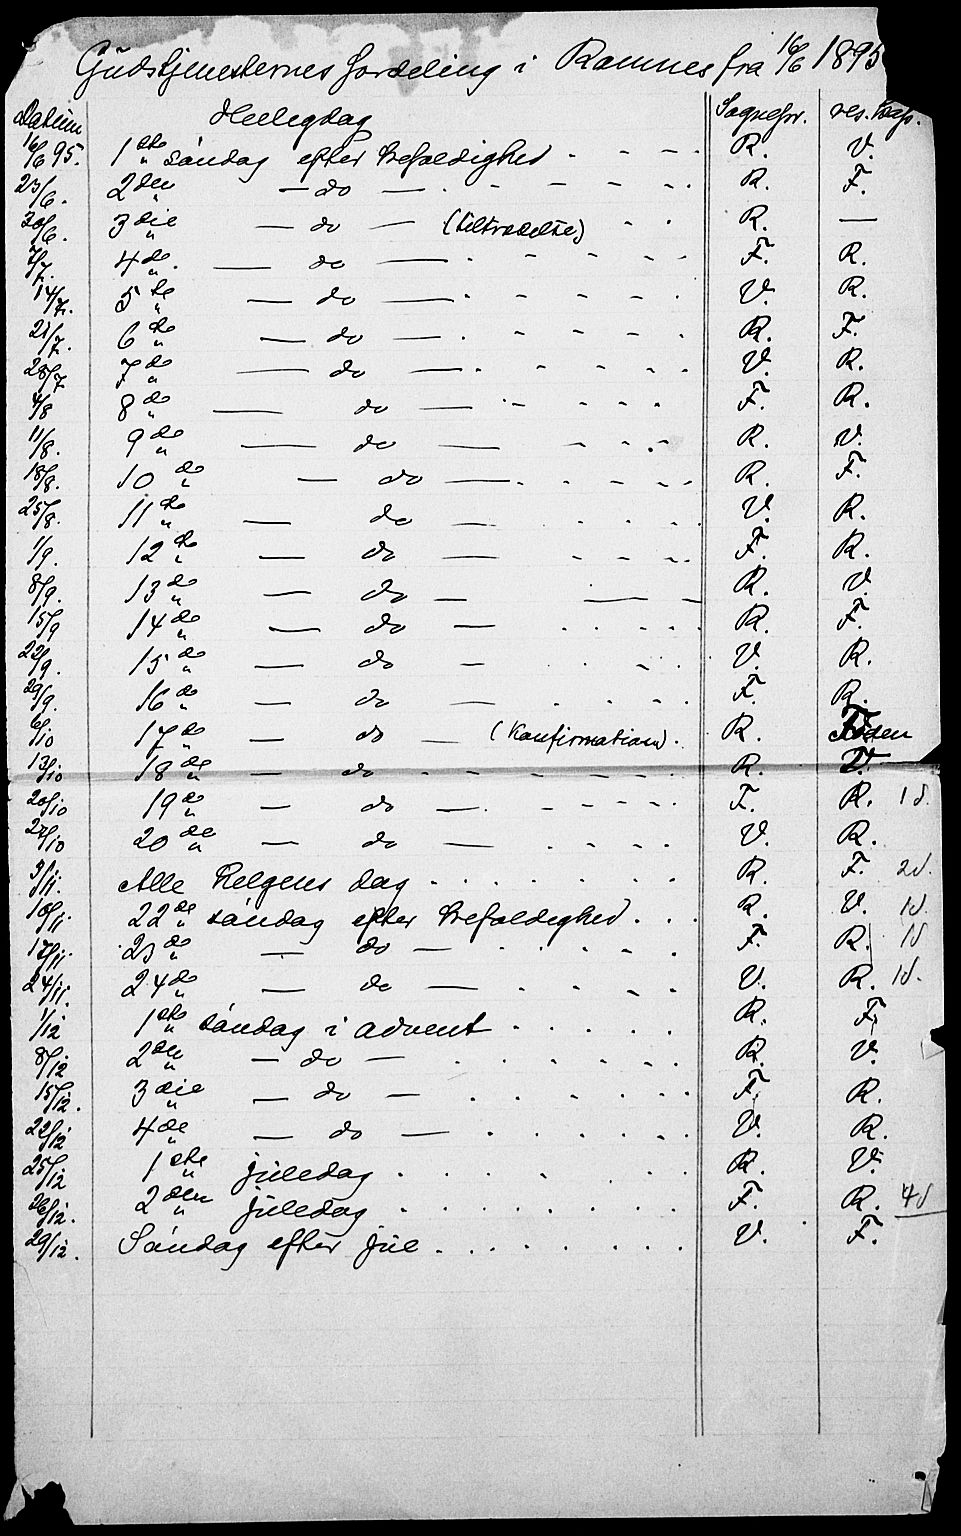 Gudstjenesternes fordeling i Ramnes fra 16/6 1895
Datum Helligdag Sognepr. res. kap.
16/6 95. 1ste søndag efter trefoldighed . - - - R. V.
23/6. 2den — do — . - - - - . R. F.
30/6. 3die — do — (tiltrædelse) - - R. —
7/7. 4de. — do — - - - - - F. R.
14/7. 5te — do — . - - - - . V. R.
21/7. 6te — do — . - - - - . R. F.
28/7 7de — do — . - - - - V. R.
4/8 8de — do — - - - - F. R.
11/8. 9de — do — - - . - R. V.
18/8. 10de — do — . - . - - . R. F.
25/8. 11te — do — . . . . V. R.
1/9. 12te — do — - - - - F. R.
8/9. 13de — do — — — R. V
15/9 14de — do — . . . . . R. F.
22/9. 15de — do — . - . V. R.
29/9. 16de — do — . - . . . F. R.
6/10 17de — do — (Konfirmation). R. Foden
13/10 18de — do - - - - - R. V.
20/10 19de — do — . - - - - F. R. 1 d.
27/10 20de — do — . - - . V. R.
3/11. Alle Helgens dag . . . . . . . R. F. 2 d.
10/11. 22de søndag efter trefoldighed . . . R. V. 1 d.
17/11. 23de — do — . . . . . F. R. 1 d
24/11. 24de — do — . . . . V. R. 1 d.
1/12 1ste søndag i advent . . . . . R. F.
8/12 2den — do — . . . . . . R. V.
15/12. 3die — do — . . . . . F. R.
22/12 4de — do — . . . . . . V. R.
25/12 1ste juledag . . . . . . R. V.
26/12. 2den juledag . . . . . . . F. R. 4 d
29/12. Søndag efter jul . . . . . . . V. F.